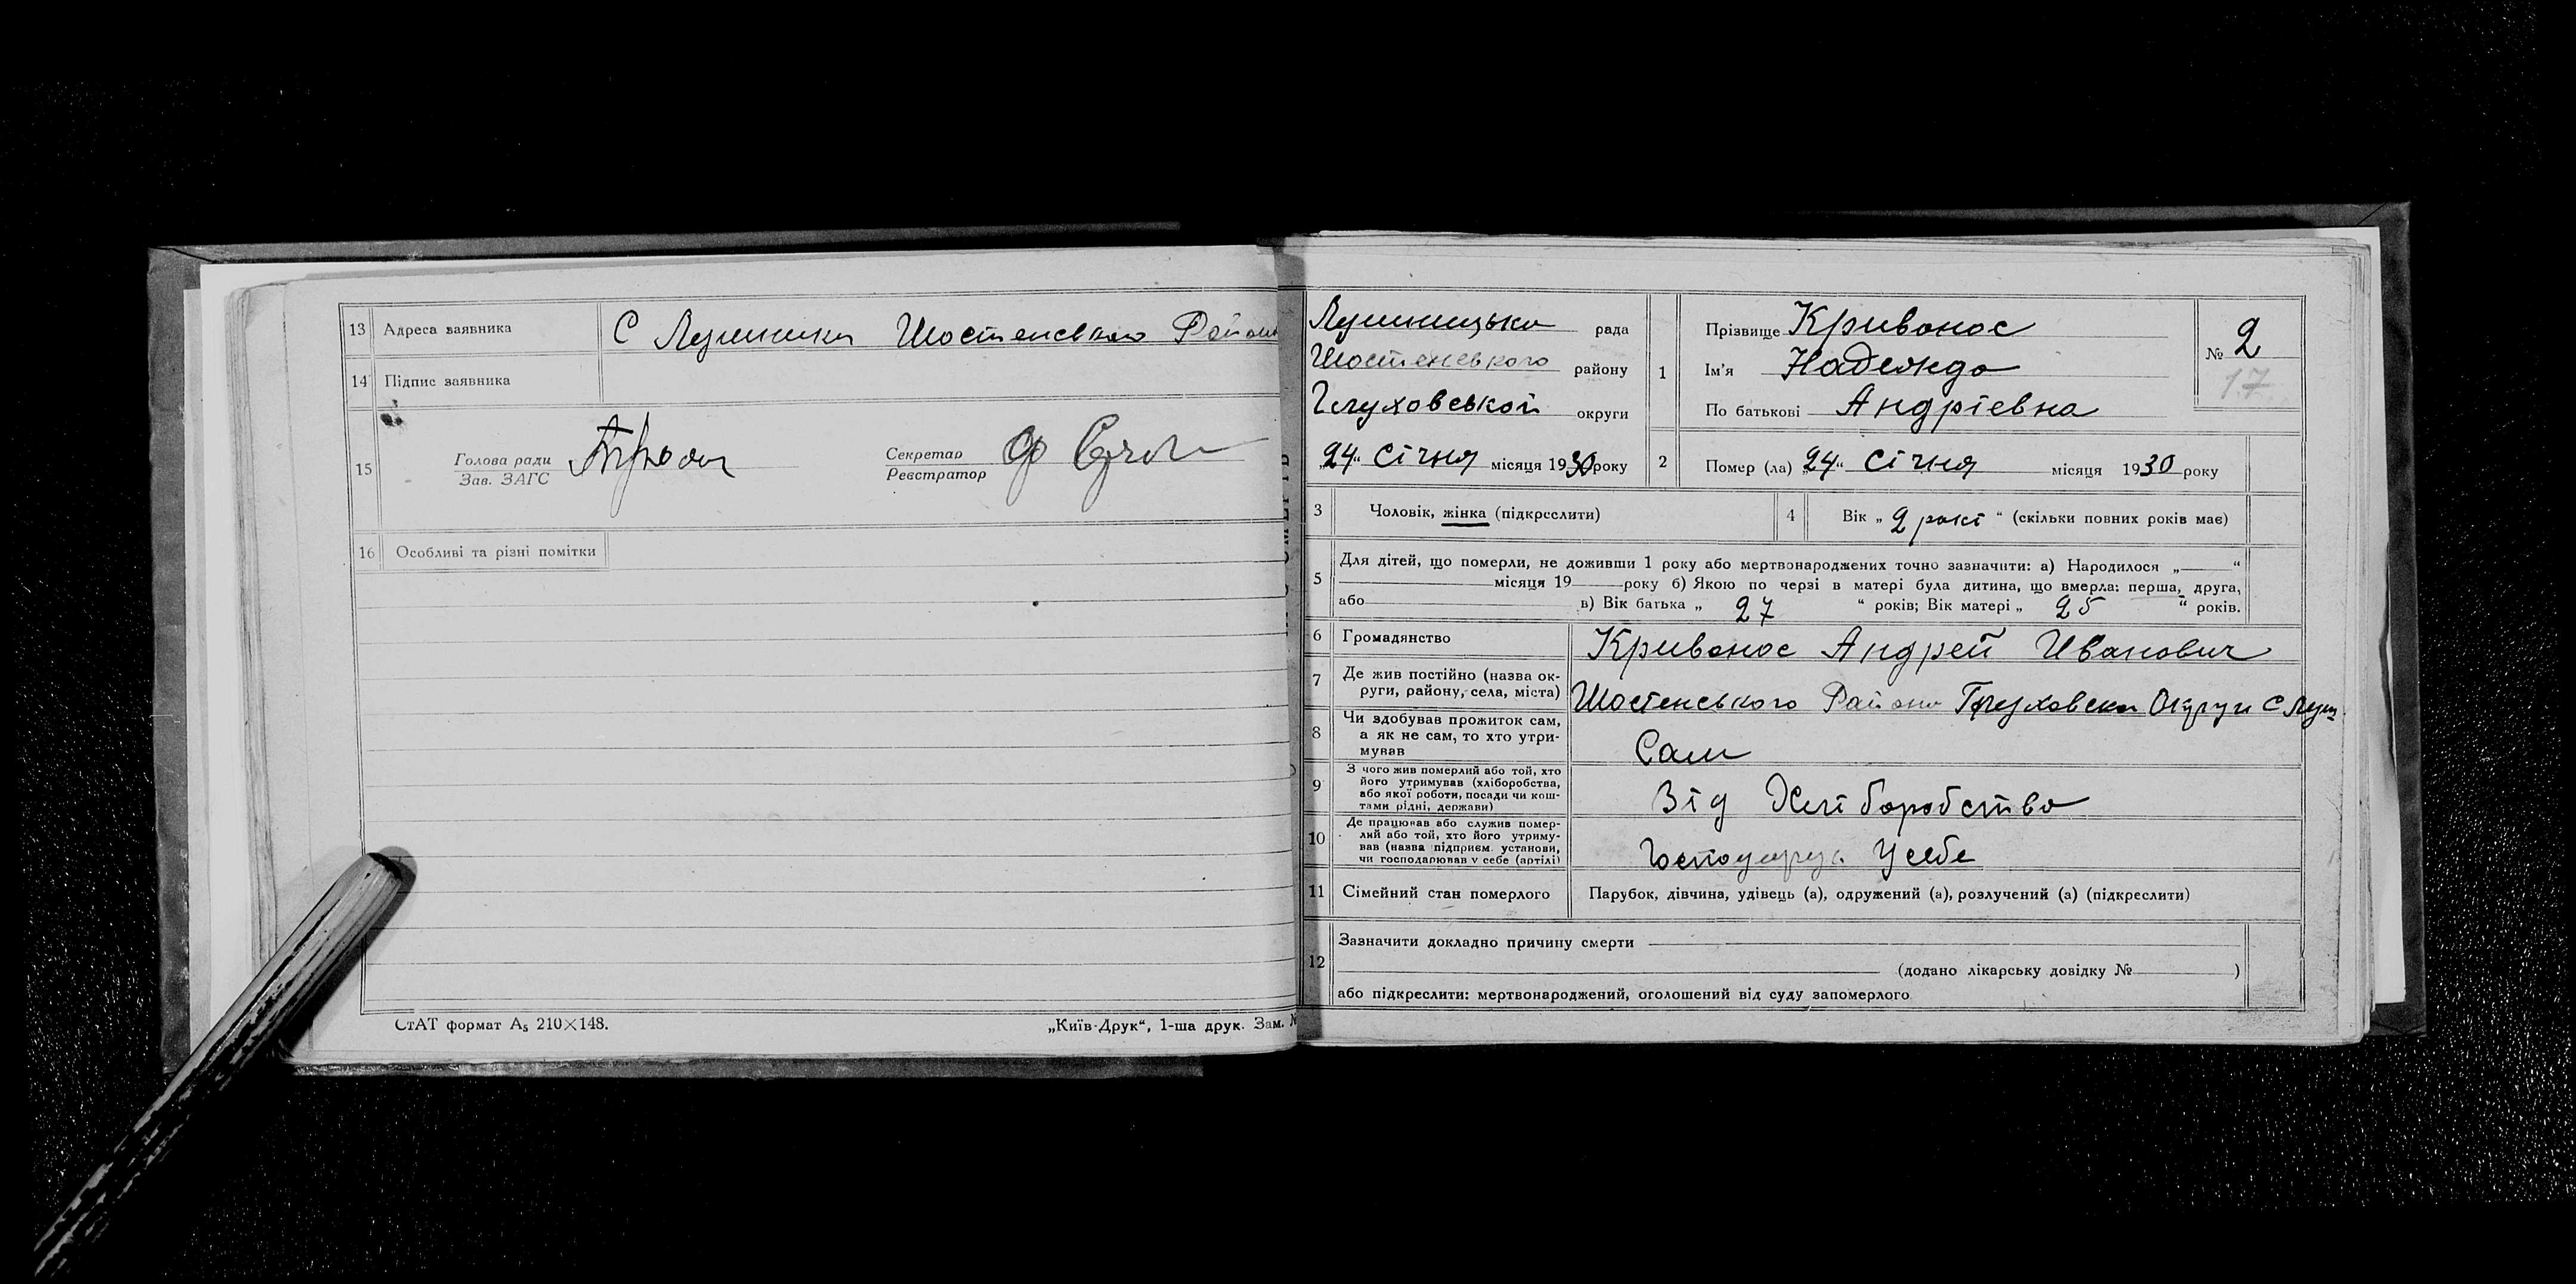 13 Адреса заявника С Лушники Шостенського Района
14 Підпис заявника
15 Голова ради
Зав. ЗАГС
Секретар
Реєстратор
16 Особливі та різні помітки
СтАТ формат А₅ 210×148. „Київ-Друк“, 1-ша друк. Зам. №
Лушницька рада
Шостенського району
Глуховской округи
„24“ Січня місяця 1930 року
1 Прізвище Кривонос
Ім'я Надежда
По батькові Андрієвна
№ 2
17
2 Помер (ла) „24“ Січня місяця 1930 року
3 Чоловік, жінка (підкреслити)
4 Вік „ 2 рокі “ (скільки повних років має)
5 Для дітей, що померли, не доживши 1 року або мертвонароджених точно зазначити: а) Народилося „ “
місяця 19 року б) Якою по черзі в матері була дитина, що вмерла: перша, друга,
або в) Вік батька „ 27 “ років; Вік матері „ 25 “ років.
6 Громадянство Кривонос Андрей Иванович
7 Де жив постійно (назва ок-
руги, району, села, міста) Шостенського Района Глуховска Округи С Луш
8 Чи здобував прожиток сам,
а як не сам, то хто утри-
мував Сам
9 З чого жив померлий або той, хто
його утримував (хліборобства,
або якої роботи, посади чи кош-
тами рідні, держави) Від Хліборобства
10 Де працював або служив помер-
лий або той, хто його утриму-
вав (назва підприєм. установи,
чи господарював у себе (артілі) У себе
11 Сімейний стан померлого Парубок, дівчина, удівець (а), одружений (а), розлучений (а) (підкреслити)
12 Зазначити докладно причину смерти
(додано лікарську довідку № )
або підкреслити: мертвонароджений, оголошений від суду запомерлого